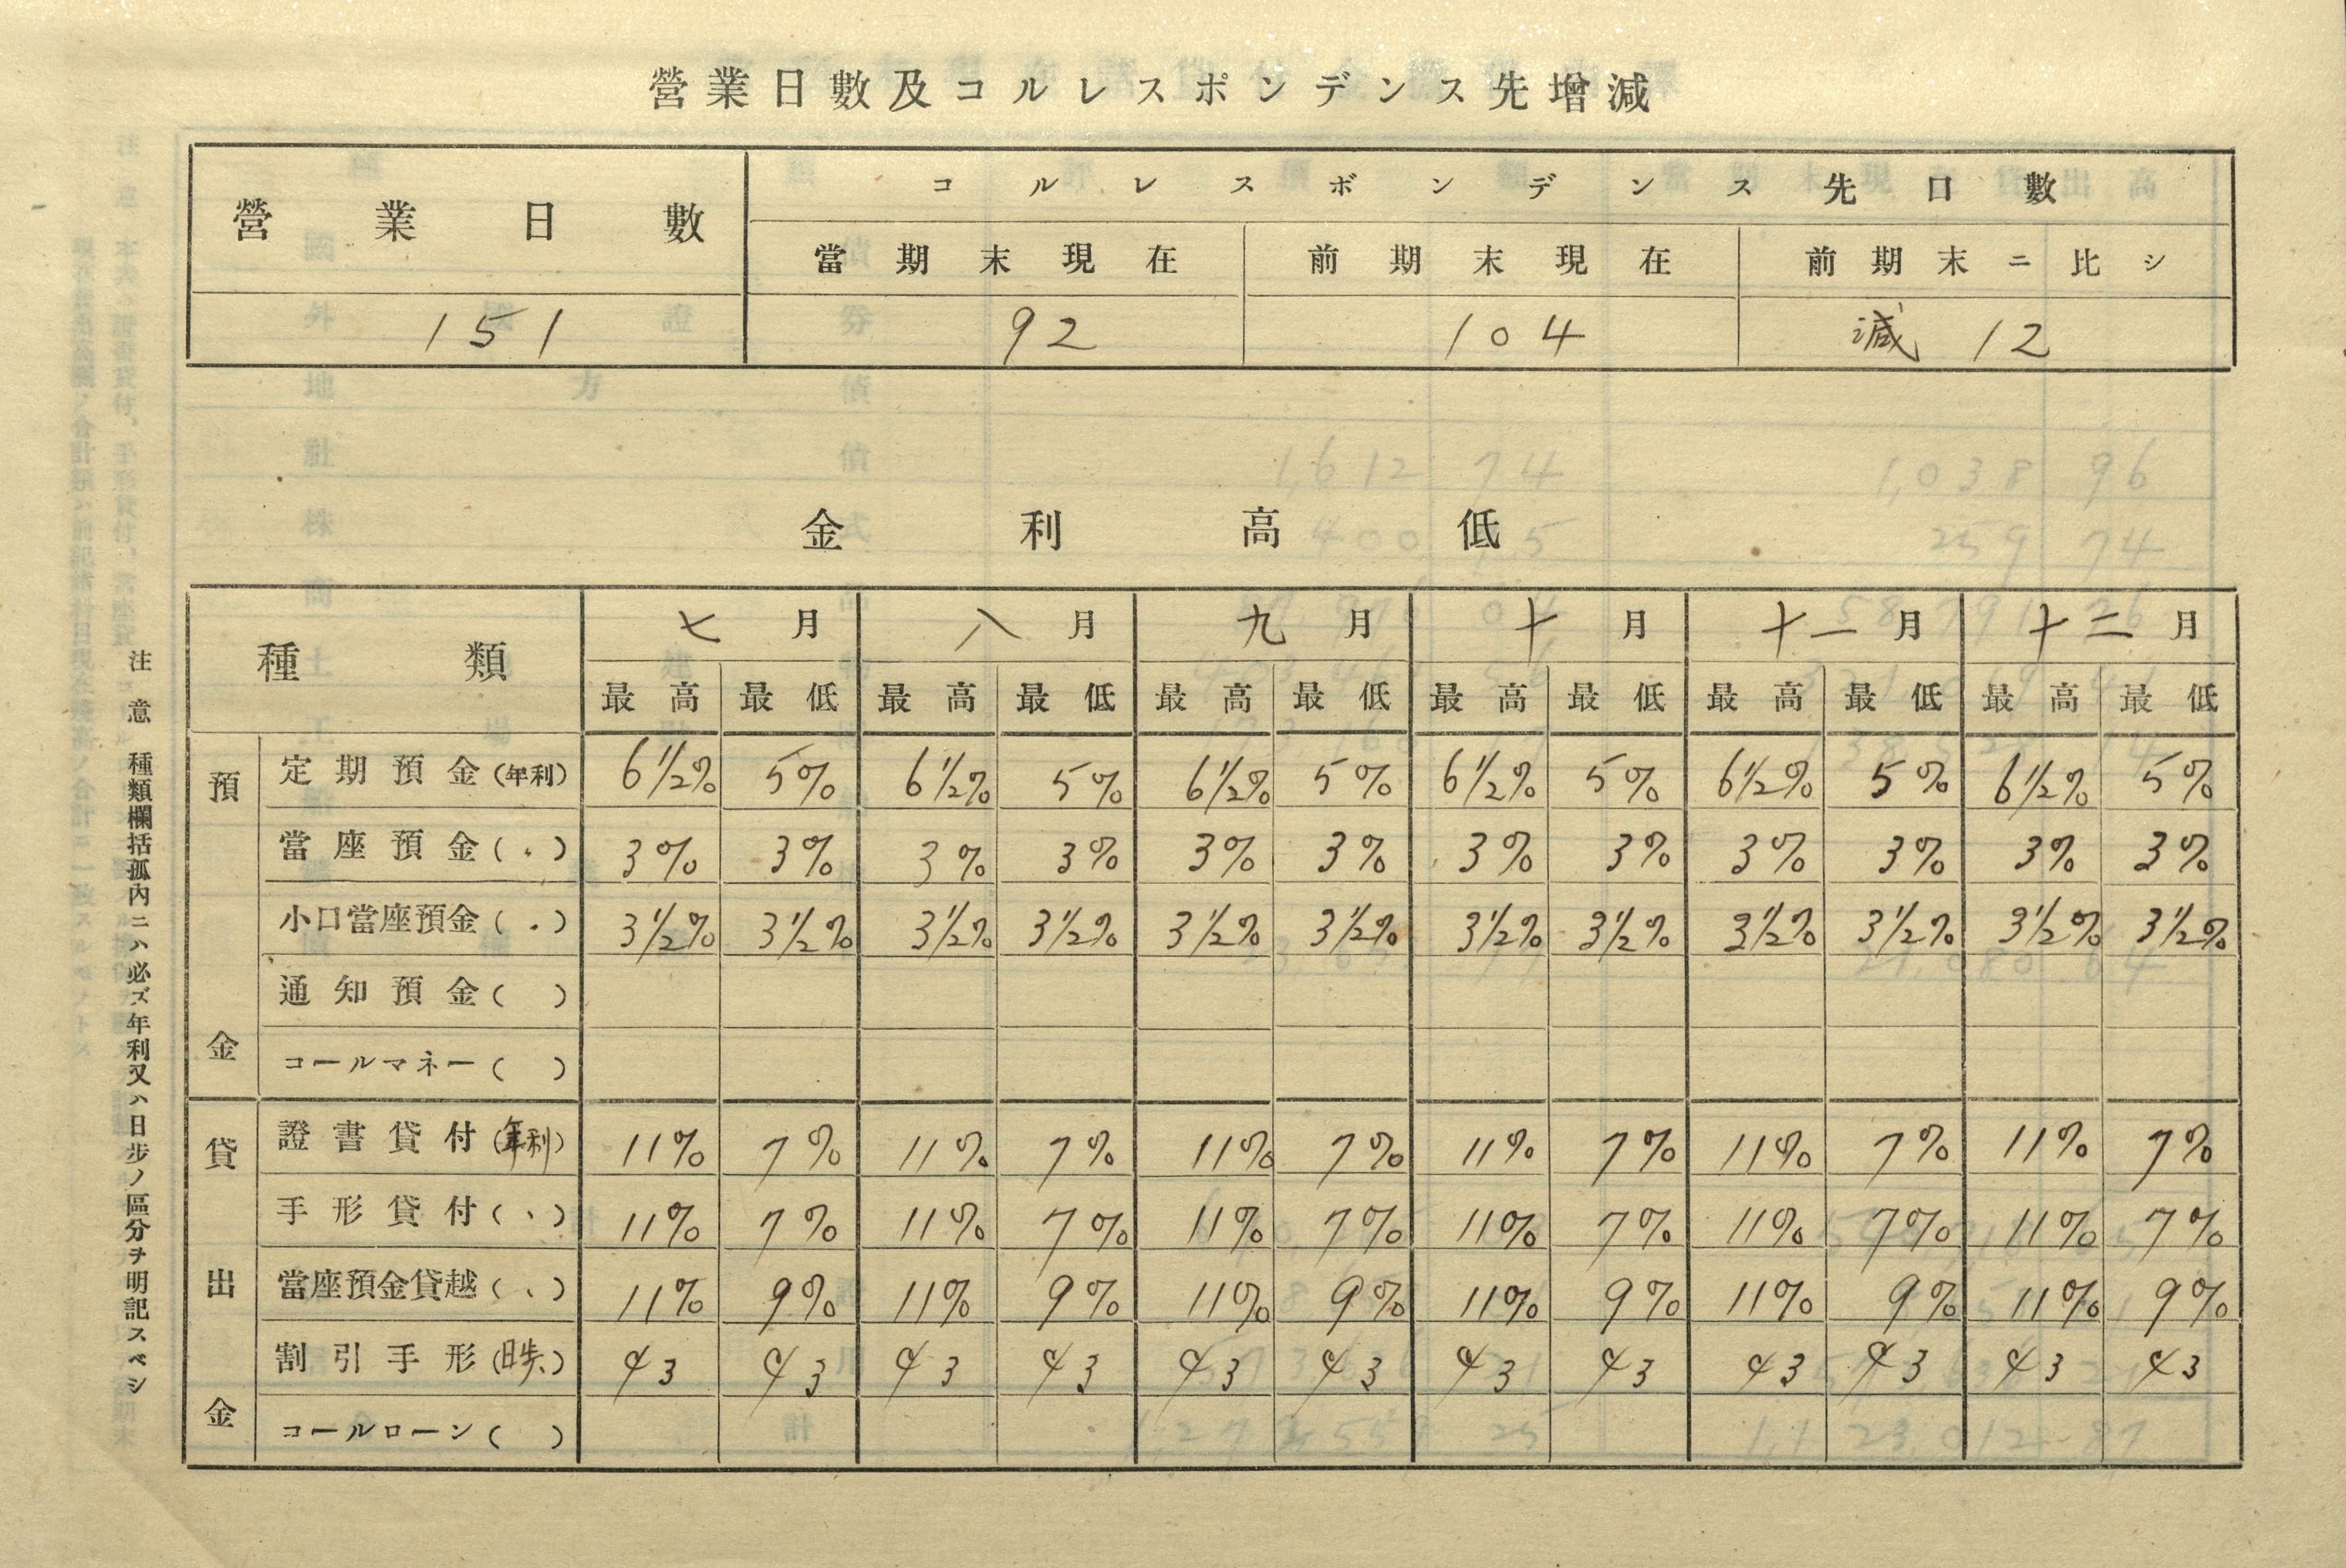 營業日數及コルレスポンデンス先増減
營業日數 コルレスポンデンス先口數
當期末現在 前期末現在 前期末ニ比シ
151 92 104 減 12
金利高低
種類 七月 八月 九月 十月 十一月 十二月
最高 最低 最高 最低 最高 最低 最高 最低 最高 最低 最高 最低
預金
定期預金(年利) 6 1/2% 5% 6 1/2% 5% 6 1/2% 5% 6 1/2% 5% 6 1/2% 5% 6 1/2% 5%
當座預金(〃) 3% 3% 3% 3% 3% 3% 3% 3% 3% 3% 3% 3%
小口當座預金(〃) 3 1/2% 3 1/2% 3 1/2% 3 1/2% 3 1/2% 3 1/2% 3 1/2% 3 1/2% 3 1/2% 3 1/2% 3 1/2% 3 1/2%
通知預金( )
コールマネー( )
貸出金
證書貸付(年利) 11% 7% 11% 7% 11% 7% 11% 7% 11% 7% 11% 7%
手形貸付(〃) 11% 7% 11% 7% 11% 7% 11% 7% 11% 7% 11% 7%
當座預金貸越(〃) 11% 9% 11% 9% 11% 9% 11% 9% 11% 9% 11% 9%
割引手形(日歩) 43 43 43 43 43 43 43 43 43 43 43 43
コールローン( )
注意 種類欄括孤内ニハ必ズ年利又ハ日歩ノ區分ヲ明記スベシ